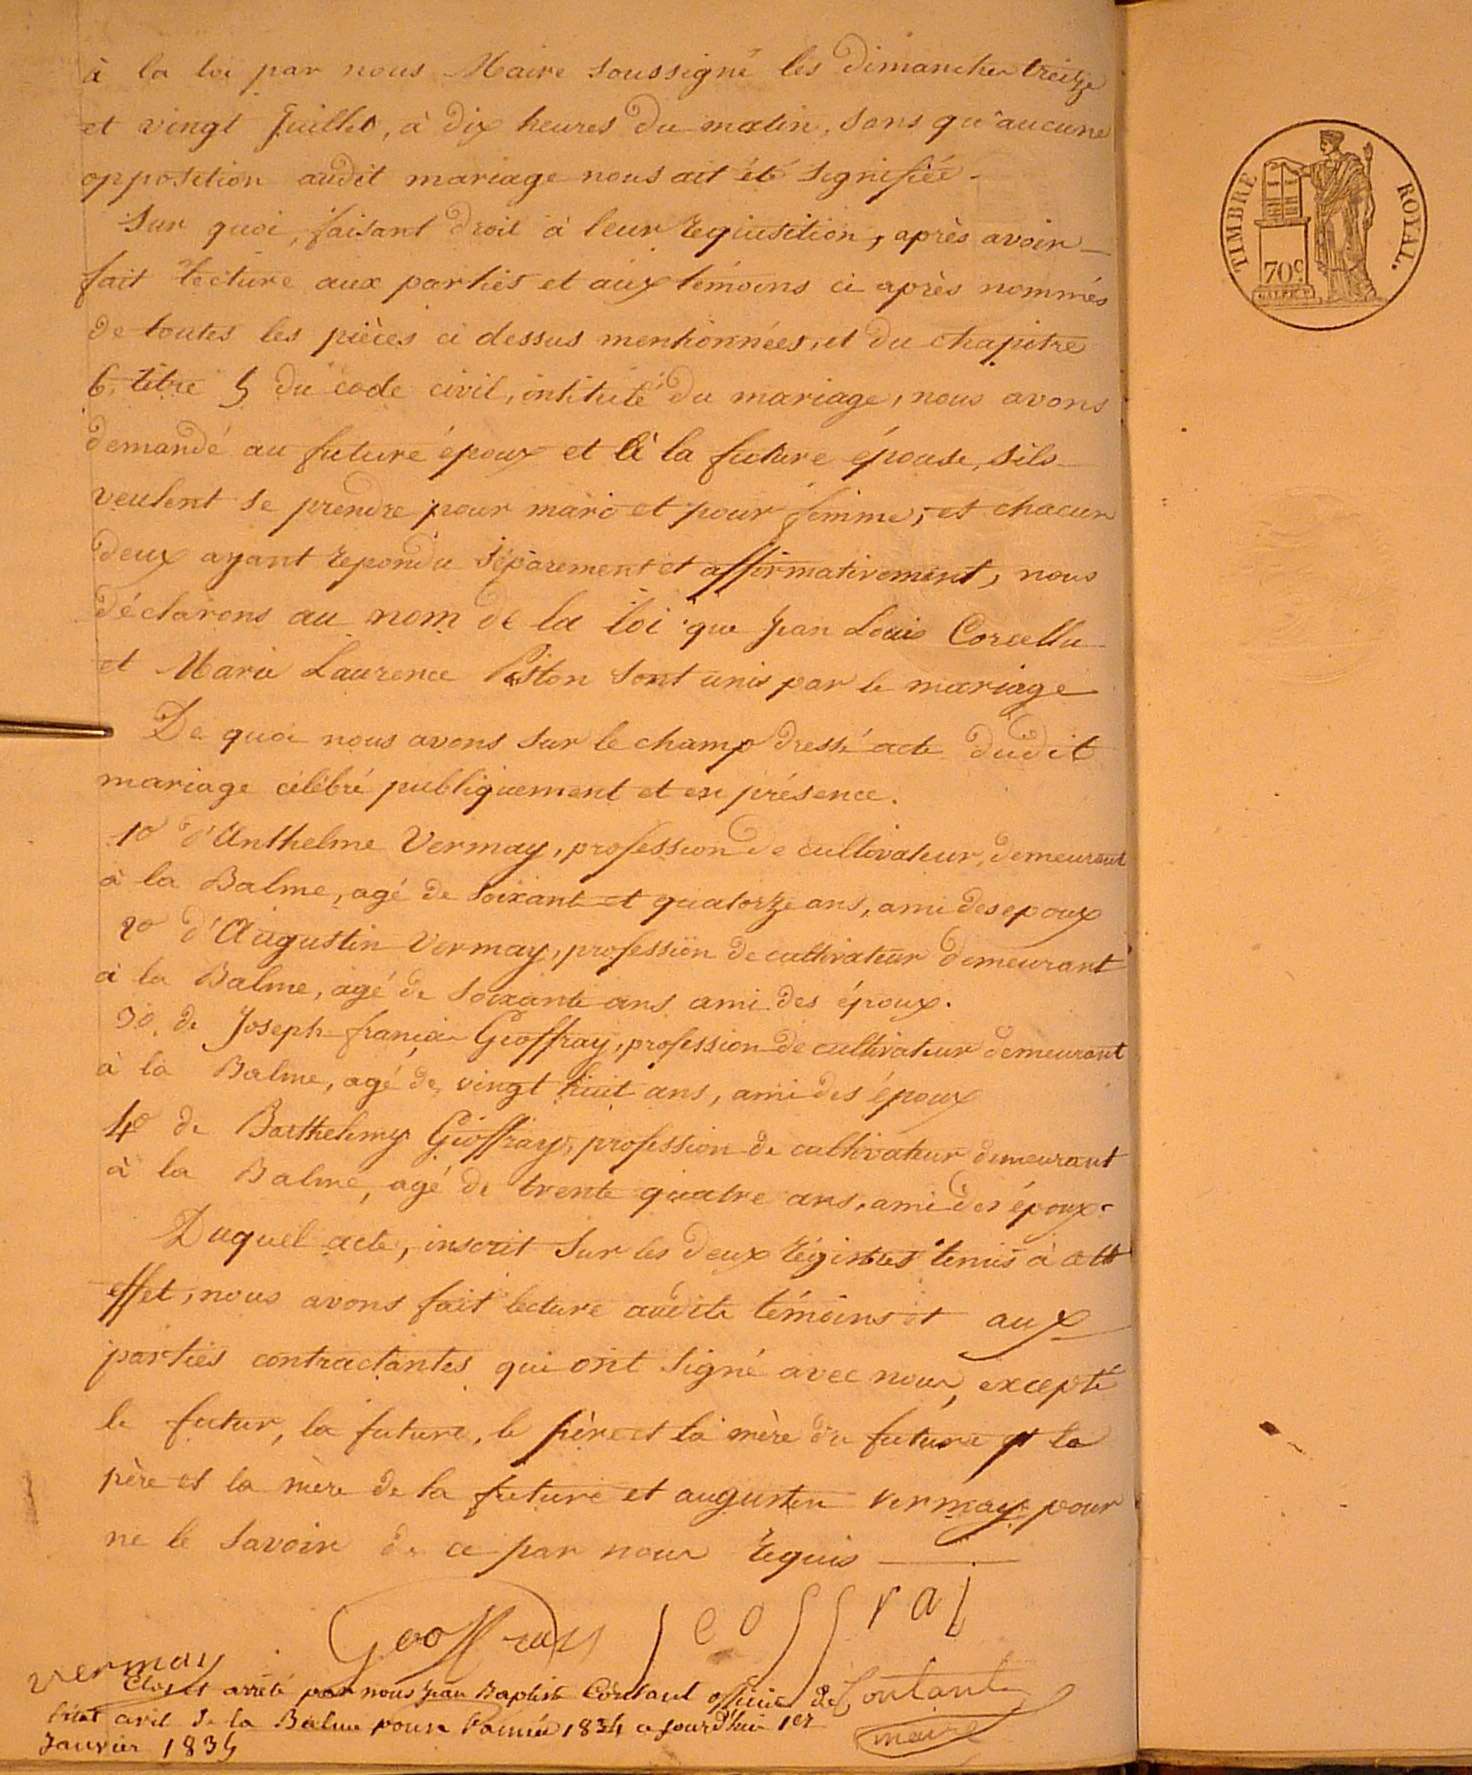 à la loi par nous Maire soussigné les dimanches treize
et vingt Juillet, à dix heures du matin, sans qu'aucune
opposition audit mariage nous ait été signifiée.
Sur quoi, faisant droit à leur requisition, après avoir
fait lecture aux parties et aux témoins ci après nommés
de toutes les pièces ci dessus mentionnées, et du chapitre
6, titre 5 du code civil, intitulé du mariage, nous avons
demandé au future époux et à la future épouse, sils
veulent se prendre pour mari et pour femme; et chacun
deux ayant repondu séparement et affirmativement, nous
déclarons au nom de la loi que Jean Louis Corcellu
et Marie Laurence Piston sont unis par le mariage
De quoi nous avons sur le champ dressé acte dudit
mariage célébré publiquement et en présence.
1o d'Anthelme Vermay, profession de cultivateur, demeurant
à la Balme, agé de soixant et quatorze ans, ami des epoux
2o d'Augustin Vermay, profession de cultivateur demeurant
à la Balme, agé de soixante ans ami des époux.
3o. de Joseph françois Geoffray, profession de cultivateur demeurant
à la Balme, agé de vingt huit ans, ami des époux
4o de Barthelemy Geoffray, profession de cultivateur demeurant
à la Balme, agé de trente quatre ans, ami des époux.
Duquel acte, inscrit sur les deux régistres tenus à cett
effet, nous avons fait lecture audits témoins et aux
parties contractantes qui ont signé avec nous, excepté
le futur, la future, le père et la mère du future et le
père et la mère de la future et augustin vermay pour
ne le savoir de ce par nous requis
Geoffray Jeoffrai
vermay
Clos et arrêté par nous Jean Baptiste Contant officier de
l'état civil de la Balme pour l'année 1834 ce jourd'hui 1er
Janvier 1835
Contant
maire
TIMBRE ROYAL.
70c